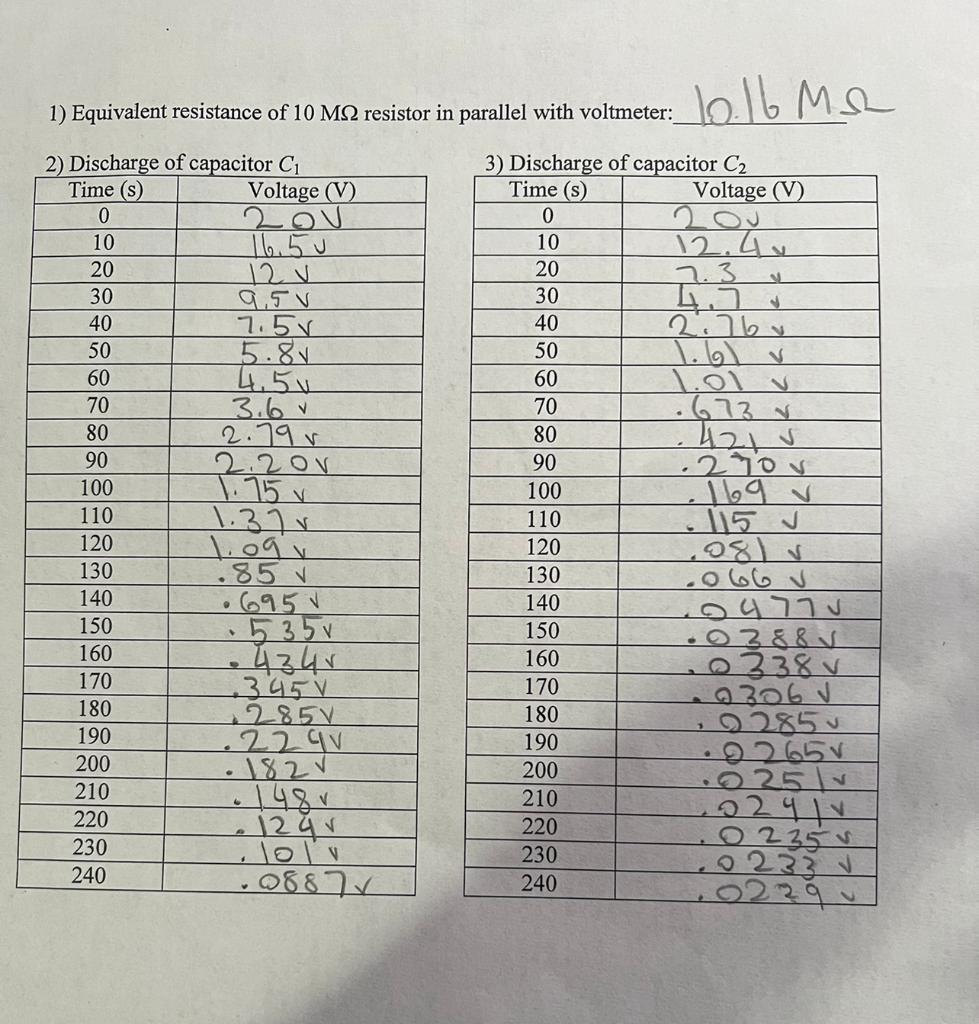 1) Equivalent resistance of 10 MΩ resistor in parallel with voltmeter: 10.16 MΩ
2) Discharge of capacitor C₁ 3) Discharge of capacitor C₂
Time (s) Voltage (V) Time (s) Voltage (V)
0 20V 0 20V
10 16.5V 10 12.4V
20 12V 20 7.3V
30 9.5V 30 4.7V
40 7.5V 40 2.76V
50 5.8V 50 1.61V
60 4.5V 60 1.01V
70 3.6V 70 .673V
80 2.79V 80 .421V
90 2.20V 90 .270V
100 1.75V 100 .169V
110 1.37V 110 .115V
120 1.09V 120 .081V
130 .85V 130 .066V
140 .695V 140 .0477V
150 .535V 150 .0388V
160 .434V 160 .0338V
170 .345V 170 .0306V
180 .285V 180 .0285V
190 .224V 190 .0265V
200 .182V 200 .0251V
210 .148V 210 .0241V
220 .124V 220 .0235V
230 .101V 230 .0233V
240 .0887V 240 .0229V